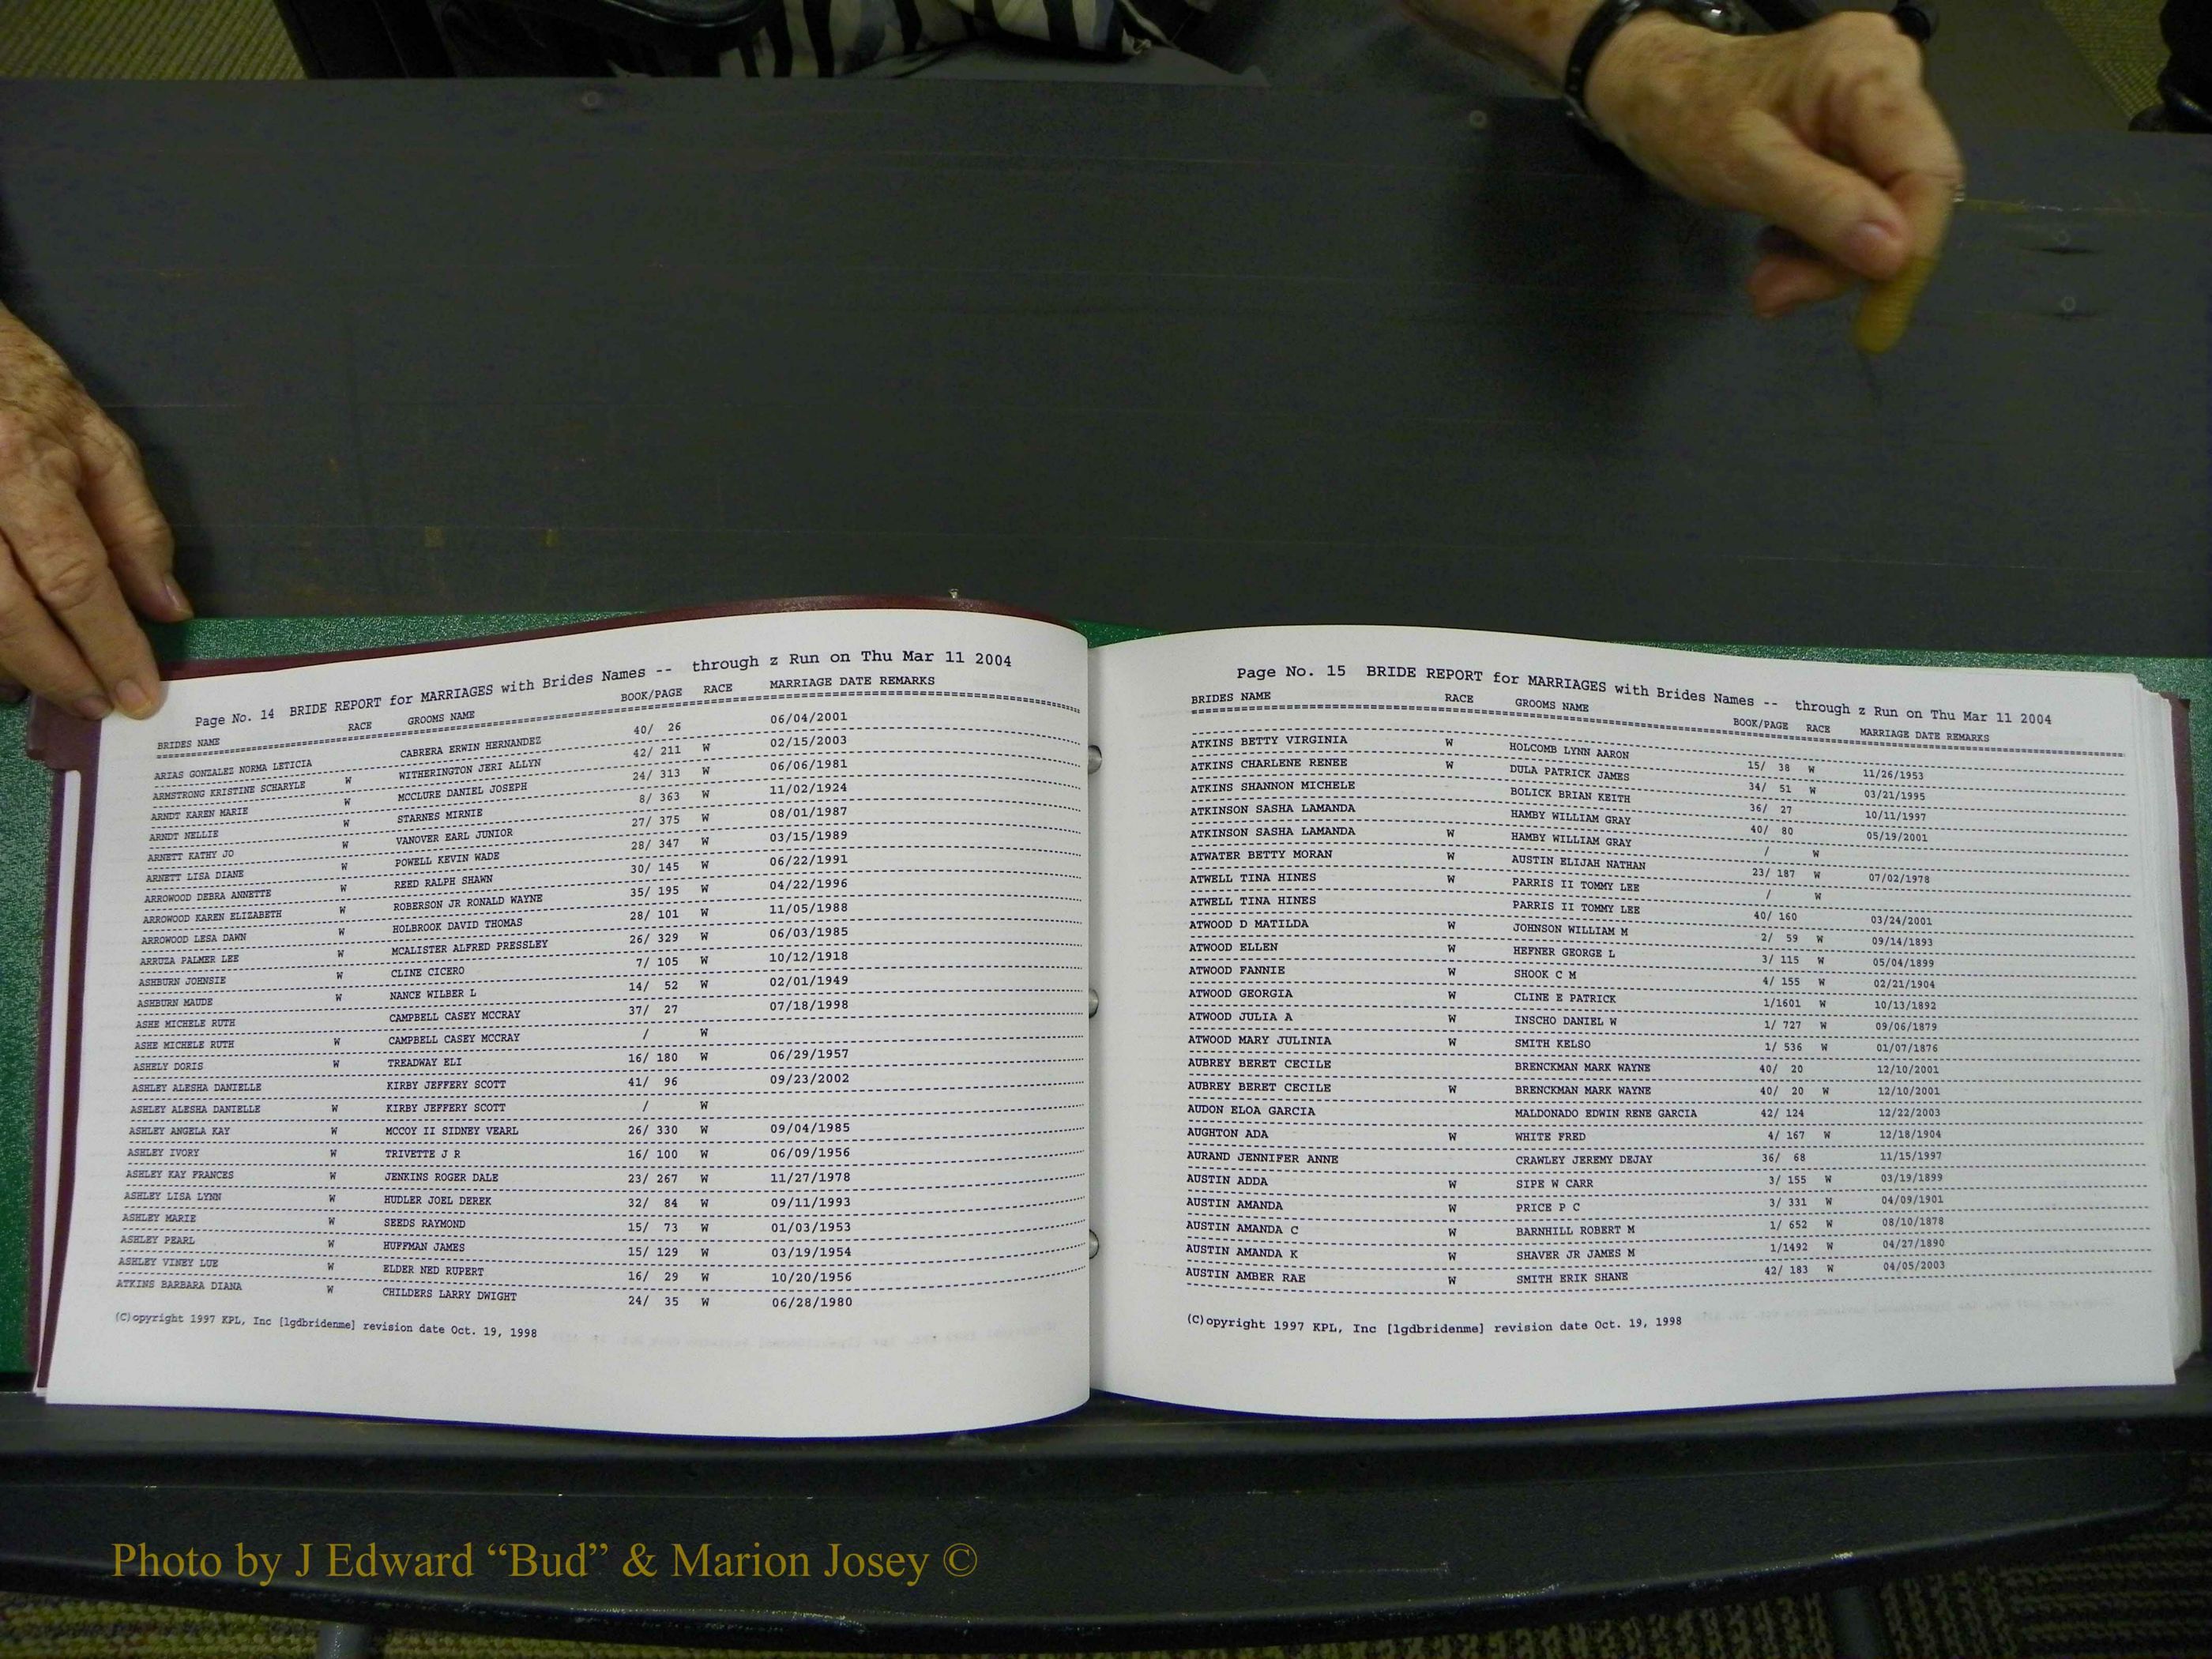 Page No. 14 BRIDE REPORT for MARRIAGES with Brides Names -- through z Run on Thu Mar 11 2004
BRIDES NAME RACE GROOMS NAME BOOK/PAGE RACE MARRIAGE DATE REMARKS
ARIAS GONZALEZ NORMA LETICIA CABRERA ERWIN HERNANDEZ 40/ 26 06/04/2001
ARMSTRONG KRISTINE SCHARYLE W WITHERINGTON JERI ALLYN 42/ 211 W 02/15/2003
ARNDT KAREN MARIE W MCCLURE DANIEL JOSEPH 24/ 313 W 06/06/1981
ARNDT NELLIE W STARNES MIRNIE 8/ 363 W 11/02/1924
ARNETT KATHY JO W VANOVER EARL JUNIOR 27/ 375 W 08/01/1987
ARNETT LISA DIANE W POWELL KEVIN WADE 28/ 347 W 03/15/1989
ARROWOOD DEBRA ANNETTE W REED RALPH SHAWN 30/ 145 W 06/22/1991
ARROWOOD KAREN ELIZABETH W ROBERSON JR RONALD WAYNE 35/ 195 W 04/22/1996
ARROWOOD LESA DAWN W HOLBROOK DAVID THOMAS 28/ 101 W 11/05/1988
ARRUZA PALMER LEE W MCALISTER ALFRED PRESSLEY 26/ 329 W 06/03/1985
ASHBURN JOHNSIE W CLINE CICERO 7/ 105 W 10/12/1918
ASHBURN MAUDE W NANCE WILBER L 14/ 52 W 02/01/1949
ASHE MICHELE RUTH CAMPBELL CASEY MCCRAY 37/ 27 07/18/1998
ASHE MICHELE RUTH W CAMPBELL CASEY MCCRAY / W
ASHELY DORIS W TREADWAY ELI 16/ 180 W 06/29/1957
ASHLEY ALESHA DANIELLE KIRBY JEFFERY SCOTT 41/ 96 09/23/2002
ASHLEY ALESHA DANIELLE W KIRBY JEFFERY SCOTT / W
ASHLEY ANGELA KAY W MCCOY II SIDNEY VEARL 26/ 330 W 09/04/1985
ASHLEY IVORY W TRIVETTE J R 16/ 100 W 06/09/1956
ASHLEY KAY FRANCES W JENKINS ROGER DALE 23/ 267 W 11/27/1978
ASHLEY LISA LYNN W HUDLER JOEL DEREK 32/ 84 W 09/11/1993
ASHLEY MARIE W SEEDS RAYMOND 15/ 73 W 01/03/1953
ASHLEY PEARL W HUFFMAN JAMES 15/ 129 W 03/19/1954
ASHLEY VINEY LUE W ELDER NED RUPERT 16/ 29 W 10/20/1956
ATKINS BARBARA DIANA W CHILDERS LARRY DWIGHT 24/ 35 W 06/28/1980
(C)opyright 1997 KPL, Inc [lgdbridenme] revision date Oct. 19, 1998
Page No. 15 BRIDE REPORT for MARRIAGES with Brides Names -- through z Run on Thu Mar 11 2004
BRIDES NAME RACE GROOMS NAME BOOK/PAGE RACE MARRIAGE DATE REMARKS
ATKINS BETTY VIRGINIA W HOLCOMB LYNN AARON 15/ 38 W 11/26/1953
ATKINS CHARLENE RENEE W DULA PATRICK JAMES 34/ 51 W 03/21/1995
ATKINS SHANNON MICHELE BOLICK BRIAN KEITH 36/ 27 10/11/1997
ATKINSON SASHA LAMANDA HAMBY WILLIAM GRAY 40/ 80 05/19/2001
ATKINSON SASHA LAMANDA W HAMBY WILLIAM GRAY / W
ATWATER BETTY MORAN W AUSTIN ELIJAH NATHAN 23/ 187 W 07/02/1978
ATWELL TINA HINES W PARRIS II TOMMY LEE / W
ATWELL TINA HINES PARRIS II TOMMY LEE 40/ 160 03/24/2001
ATWOOD D MATILDA W JOHNSON WILLIAM M 2/ 59 W 09/14/1893
ATWOOD ELLEN W HEFNER GEORGE L 3/ 115 W 05/04/1899
ATWOOD FANNIE W SHOOK C M 4/ 155 W 02/21/1904
ATWOOD GEORGIA W CLINE E PATRICK 1/1601 W 10/13/1892
ATWOOD JULIA A W INSCHO DANIEL W 1/ 727 W 09/06/1879
ATWOOD MARY JULINIA W SMITH KELSO 1/ 536 W 01/07/1876
AUBREY BERET CECILE BRENCKMAN MARK WAYNE 40/ 20 12/10/2001
AUBREY BERET CECILE W BRENCKMAN MARK WAYNE 40/ 20 W 12/10/2001
AUDON ELOA GARCIA MALDONADO EDWIN RENE GARCIA 42/ 124 12/22/2003
AUGHTON ADA W WHITE FRED 4/ 167 W 12/18/1904
AURAND JENNIFER ANNE CRAWLEY JEREMY DEJAY 36/ 68 11/15/1997
AUSTIN ADDA W SIPE W CARR 3/ 155 W 03/19/1899
AUSTIN AMANDA W PRICE P C 3/ 331 W 04/09/1901
AUSTIN AMANDA C W BARNHILL ROBERT M 1/ 652 W 08/10/1878
AUSTIN AMANDA K W SHAVER JR JAMES M 1/1492 W 04/27/1890
AUSTIN AMBER RAE W SMITH ERIK SHANE 42/ 183 W 04/05/2003
(C)opyright 1997 KPL, Inc [lgdbridenme] revision date Oct. 19, 1998
Photo by J Edward “Bud” & Marion Josey ©